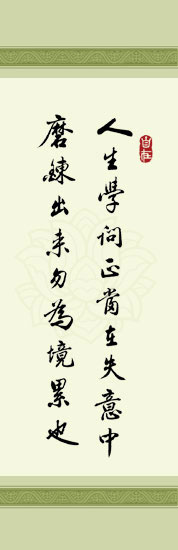 人生學問正當在失意中
磨鍊出来勿為境累也
自在